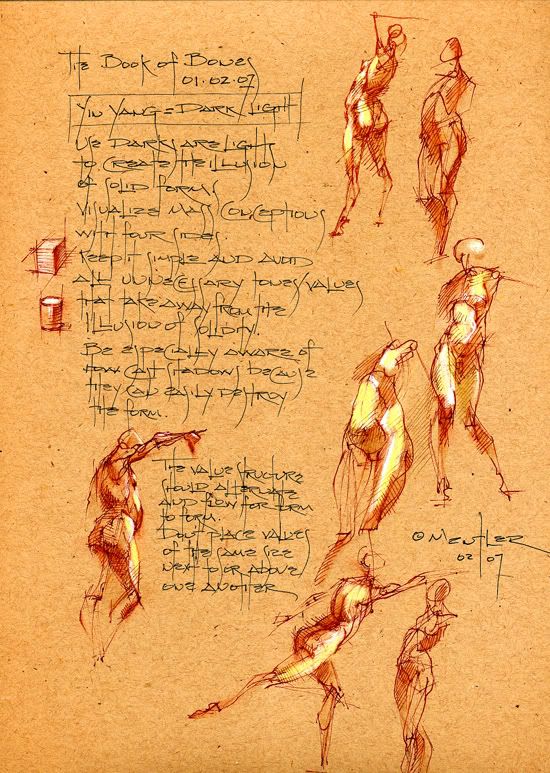 The Book of Bones
01.02.07
Yin Yang = Dark/Light
Use Darks are Lights
to create the illusion
of solid forms
Visualize mass conceptions
with four sides.
Keep it simple and avoid
all unnecessary tones/values
that take away from the
illusion of solidity.
Be especially aware of
how cast shadows because
they can easily destroy
the form.
The value structure
should alternate
and flow for form
to form.
Don't place values
of the same size
next to or above
one another
© Mentler
02 07